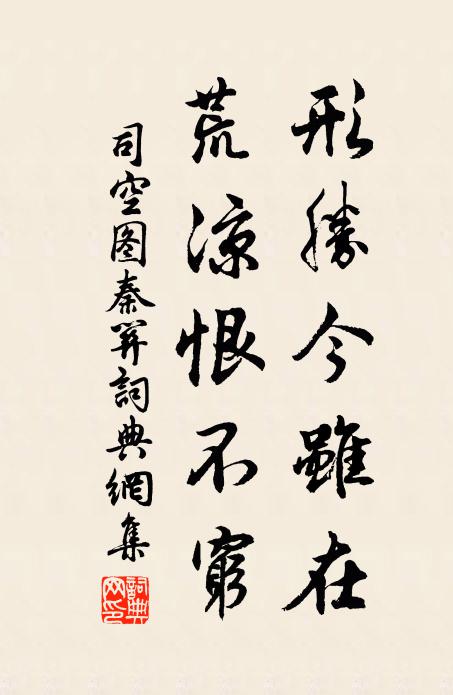 形勝今雖在
荒涼恨不窮
司空图秦關詞典網集
詞典網印